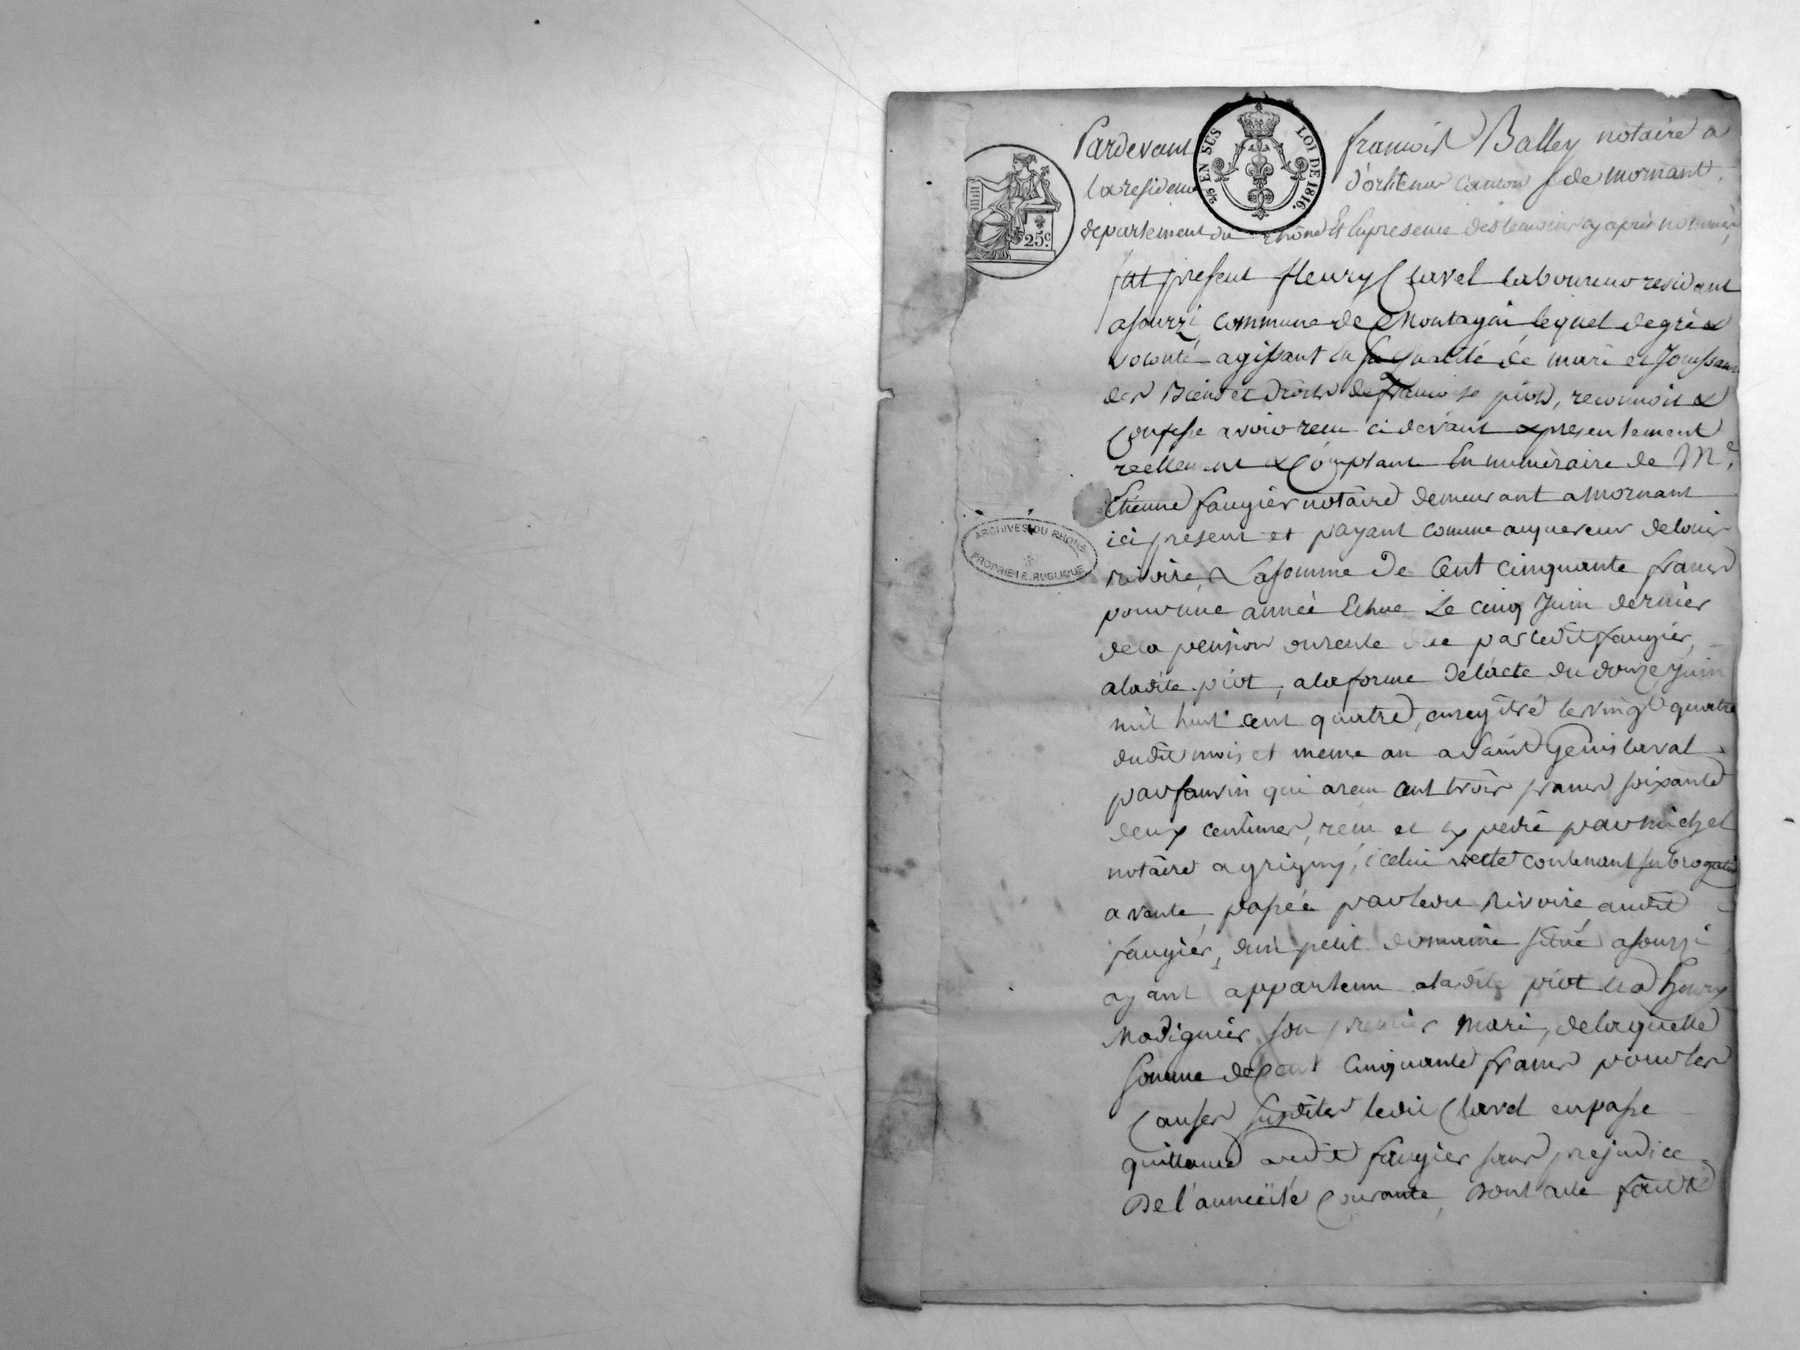 Pardevant françois Balley notaire a
la residence d'orlienas canton de mornant,
departement du rhône Et En presence des temoins cy après nommés,
fut present fleury Clavel laboureur residant
a sourzi, commune de Montagni lequel de gré &
volonté agissant en sa qualité de mari et Jouissant
des Biens et droits de francoise piot, reconnoit &
Confesse avoir recu ci devant & presentement
reellement & Comptant En numèraire de Me.
Etienne faugier notaire demeurant a Mornant
ici present et payant comme acquereur de louis
rivoire, La somme De Cent cinquante francs
pour une année Echue Le cinq Juin dernier
de la pension ou rente due par ledit faugier,
a ladite piot, a la forme de lacte du douze Juin
mil huit cent quatre, enregitré le vingt quatre
dudit mois et meme an a Saint Genis laval
par fauvin qui a recu cent trois francs soixante
deux centimes, recu et expedié par michel
notaire a grigny, icelui contenant subrogation
a vente passée par ledit Rivoire audit
faugier, d'un petit domaine situé a sourzi
ayant appartenu a ladite piot et a fleury
Madignier son premier mari, de laquelle
somme de Cent Cinquante francs pour les
Causes susdites ledit Clavel en passe
quittance audit faugier sans prejudice
De l'anneïté Courante,
25 EN SUS
LOI DE 1816.
25c
ARCHIVES DU RHONE
PROPRIETE PUBLIQUE